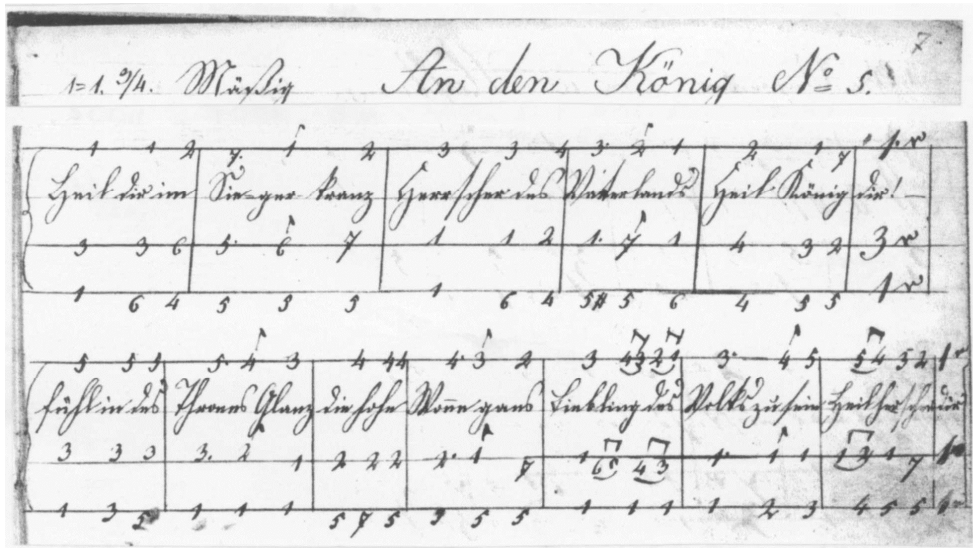 7.
1=1. 3/4. Mäßig An den König No 5.
1 1 2 7. 1 2 3 3 4 3. 2 1 2 1 7 1. r
Heil dir im Sie-ger-kranz Herrscher des Vaterlands Heil König dir!
3 3 6 5. 6 7 1 1 2 1. 7 1 4 3 2 3 r
1 6 4 5 5 5 1 6 4 5# 5 6 4 5 5 1 r
5 5 5 5. 4 3 4 4 4 4. 3 2 3 4 3 2 1 3. 4 5 5 4 3 2 1 r
fühl in des Thrones Glanz die hohe Wonne ganz Liebling des Volks zu sein Heil Herrscher dir
3 3 3 3. 2 1 2 2 2 2. 1 7 1 6 5 4 3 1. 1 1 1 3 1 7 1
1 3 5 1 1 1 5 7 5 5 5 5 1 1 1 1 2 3 4 5 5 1 r